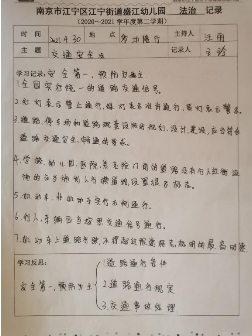 南京市江宁区江宁街道盛江幼儿园 法治 记录
(2020-2021学年度第二学期)
时间 2021.4.30 地点 主持人
主题 交通安全法 记录人
学习记录:安全第一,预防为主
1.全国实行统一的道路交通信号。
2.红灯表示禁止通行,绿灯表示准许通行,黄灯表示警示。
3.道路、停车场和道路配套设施的规划、设计、建设,应当符合
道路交通安全、畅通的要求。
4.学校、幼儿园、医院、养老院门前的道路没有行人过街设
施的,应当施划人行横道线,设置提示标志。
5.机动车、非机动车实行右侧通行。
6.行人、车辆应当按照交通信号通行。
7.机动车上道路行驶,不得超过限速标志标明的最高时速。
学习反思:
安全第一,预防为主
1.道路通行条件
2.道路通行规定
3.交通事故处理